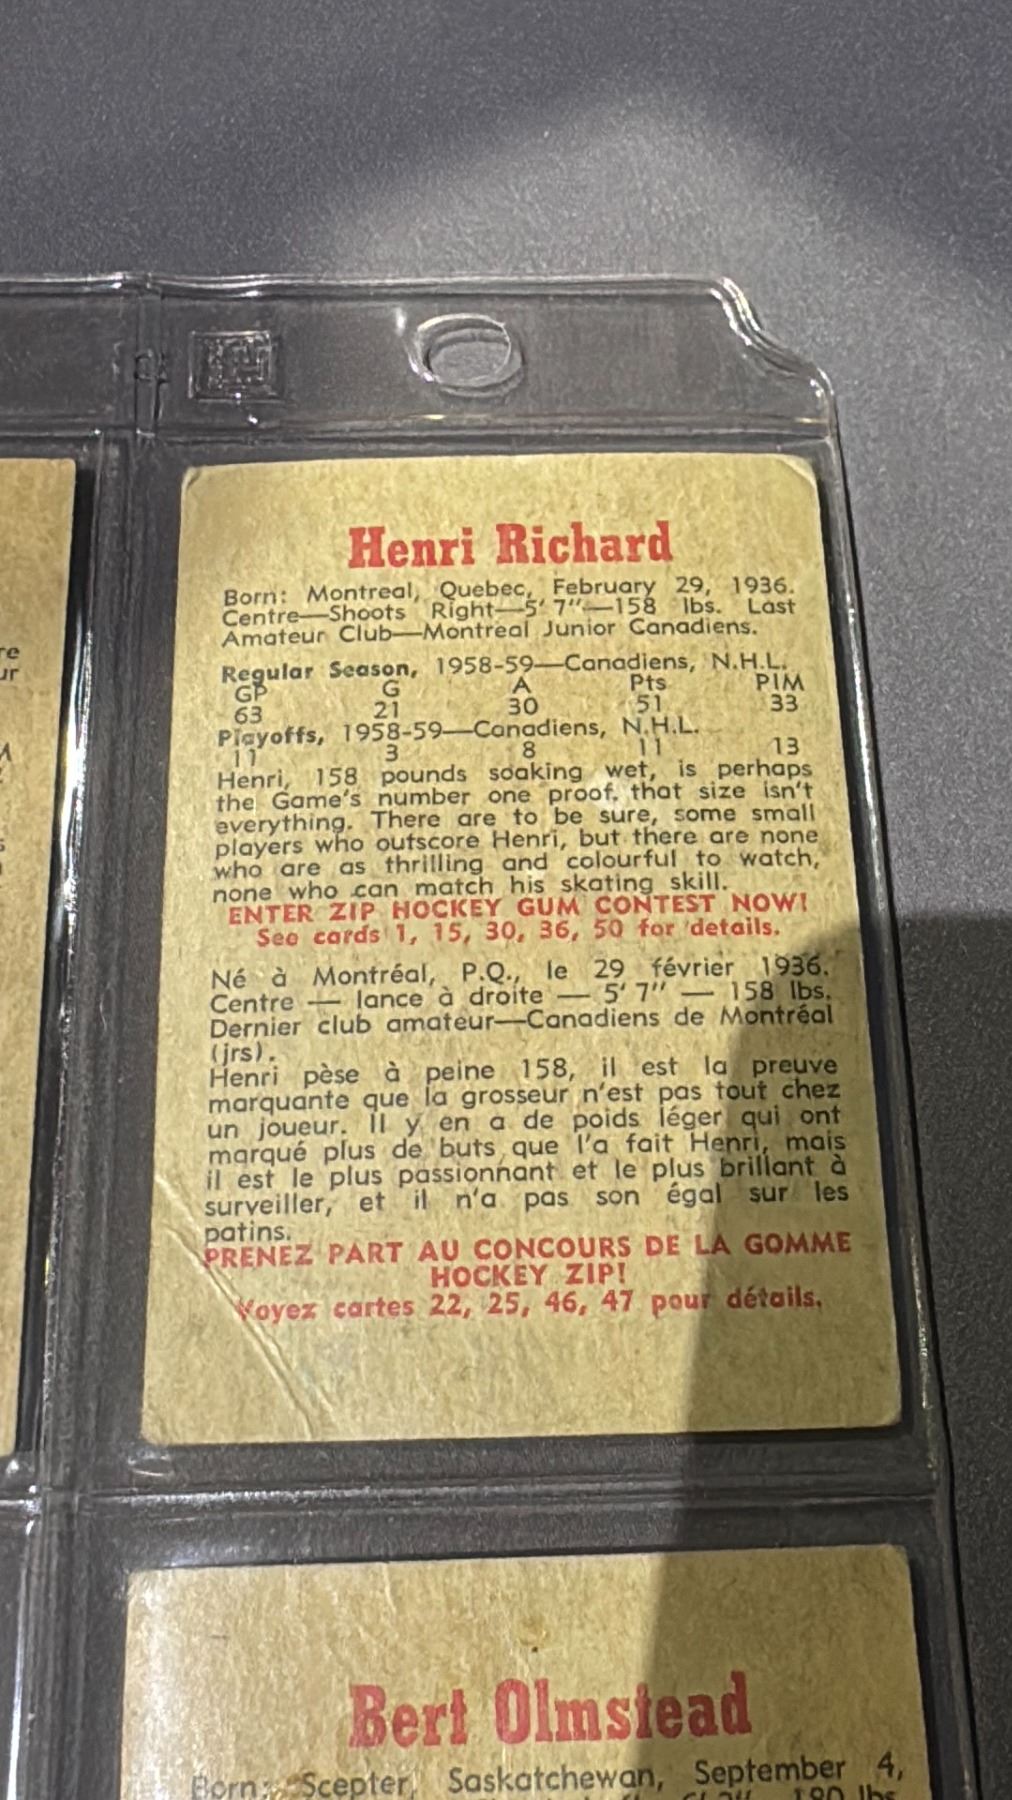 Henri Richard
Born: Montreal, Quebec, February 29, 1936.
Centre—Shoots Right—5' 7"—158 lbs. Last
Amateur Club—Montreal Junior Canadiens.
Regular Season, 1958-59—Canadiens, N.H.L.
GP G A Pts PIM
63 21 30 51 33
Playoffs, 1958-59—Canadiens, N.H.L.
11 3 8 11 13
Henri, 158 pounds soaking wet, is perhaps
the Game's number one proof, that size isn't
everything. There are to be sure, some small
players who outscore Henri, but there are none
who are as thrilling and colourful to watch,
none who can match his skating skill.
ENTER ZIP HOCKEY GUM CONTEST NOW!
See cards 1, 15, 30, 36, 50 for details.
Né à Montréal, P.Q., le 29 février 1936.
Centre — lance à droite — 5' 7" — 158 lbs.
Dernier club amateur—Canadiens de Montréal
(jrs).
Henri pèse à peine 158, il est la preuve
marquante que la grosseur n'est pas tout chez
un joueur. Il y en a de poids léger qui ont
marqué plus de buts que l'a fait Henri, mais
il est le plus passionnant et le plus brillant à
surveiller, et il n'a pas son égal sur les
patins.
PRENEZ PART AU CONCOURS DE LA GOMME
HOCKEY ZIP!
Voyez cartes 22, 25, 46, 47 pour détails.
Bert Olmstead
Born: Scepter, Saskatchewan, September 4,